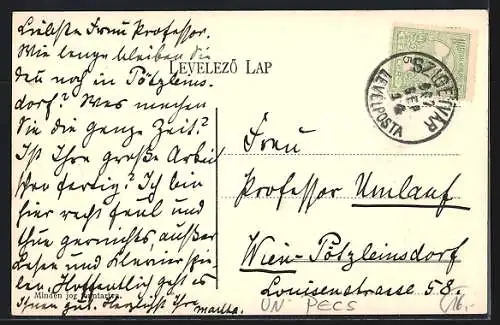 Liebste Frau Professor.
Wie lange bleiben Sie
denn noch in Pötzleins-
dorf? Was machen
Sie die ganze Zeit?
Ist Ihre große Arbeit
schon fertig? Ich bin
hier recht faul und
thue garnichts, außer
Lesen und Klavierspie-
len. Hoffentlich geht es
Ihnen gut. Herzlichst Ihre
Martha.
LEVELEZŐ LAP
SZIGETVÁR
LEVÉLPOSTA
907
SEP
14
5
Frau
Professor Umlauf
Wien-Pötzleinsdorf
Louisenstrasse 58.
Minden jog fenntartva.
UN PECS